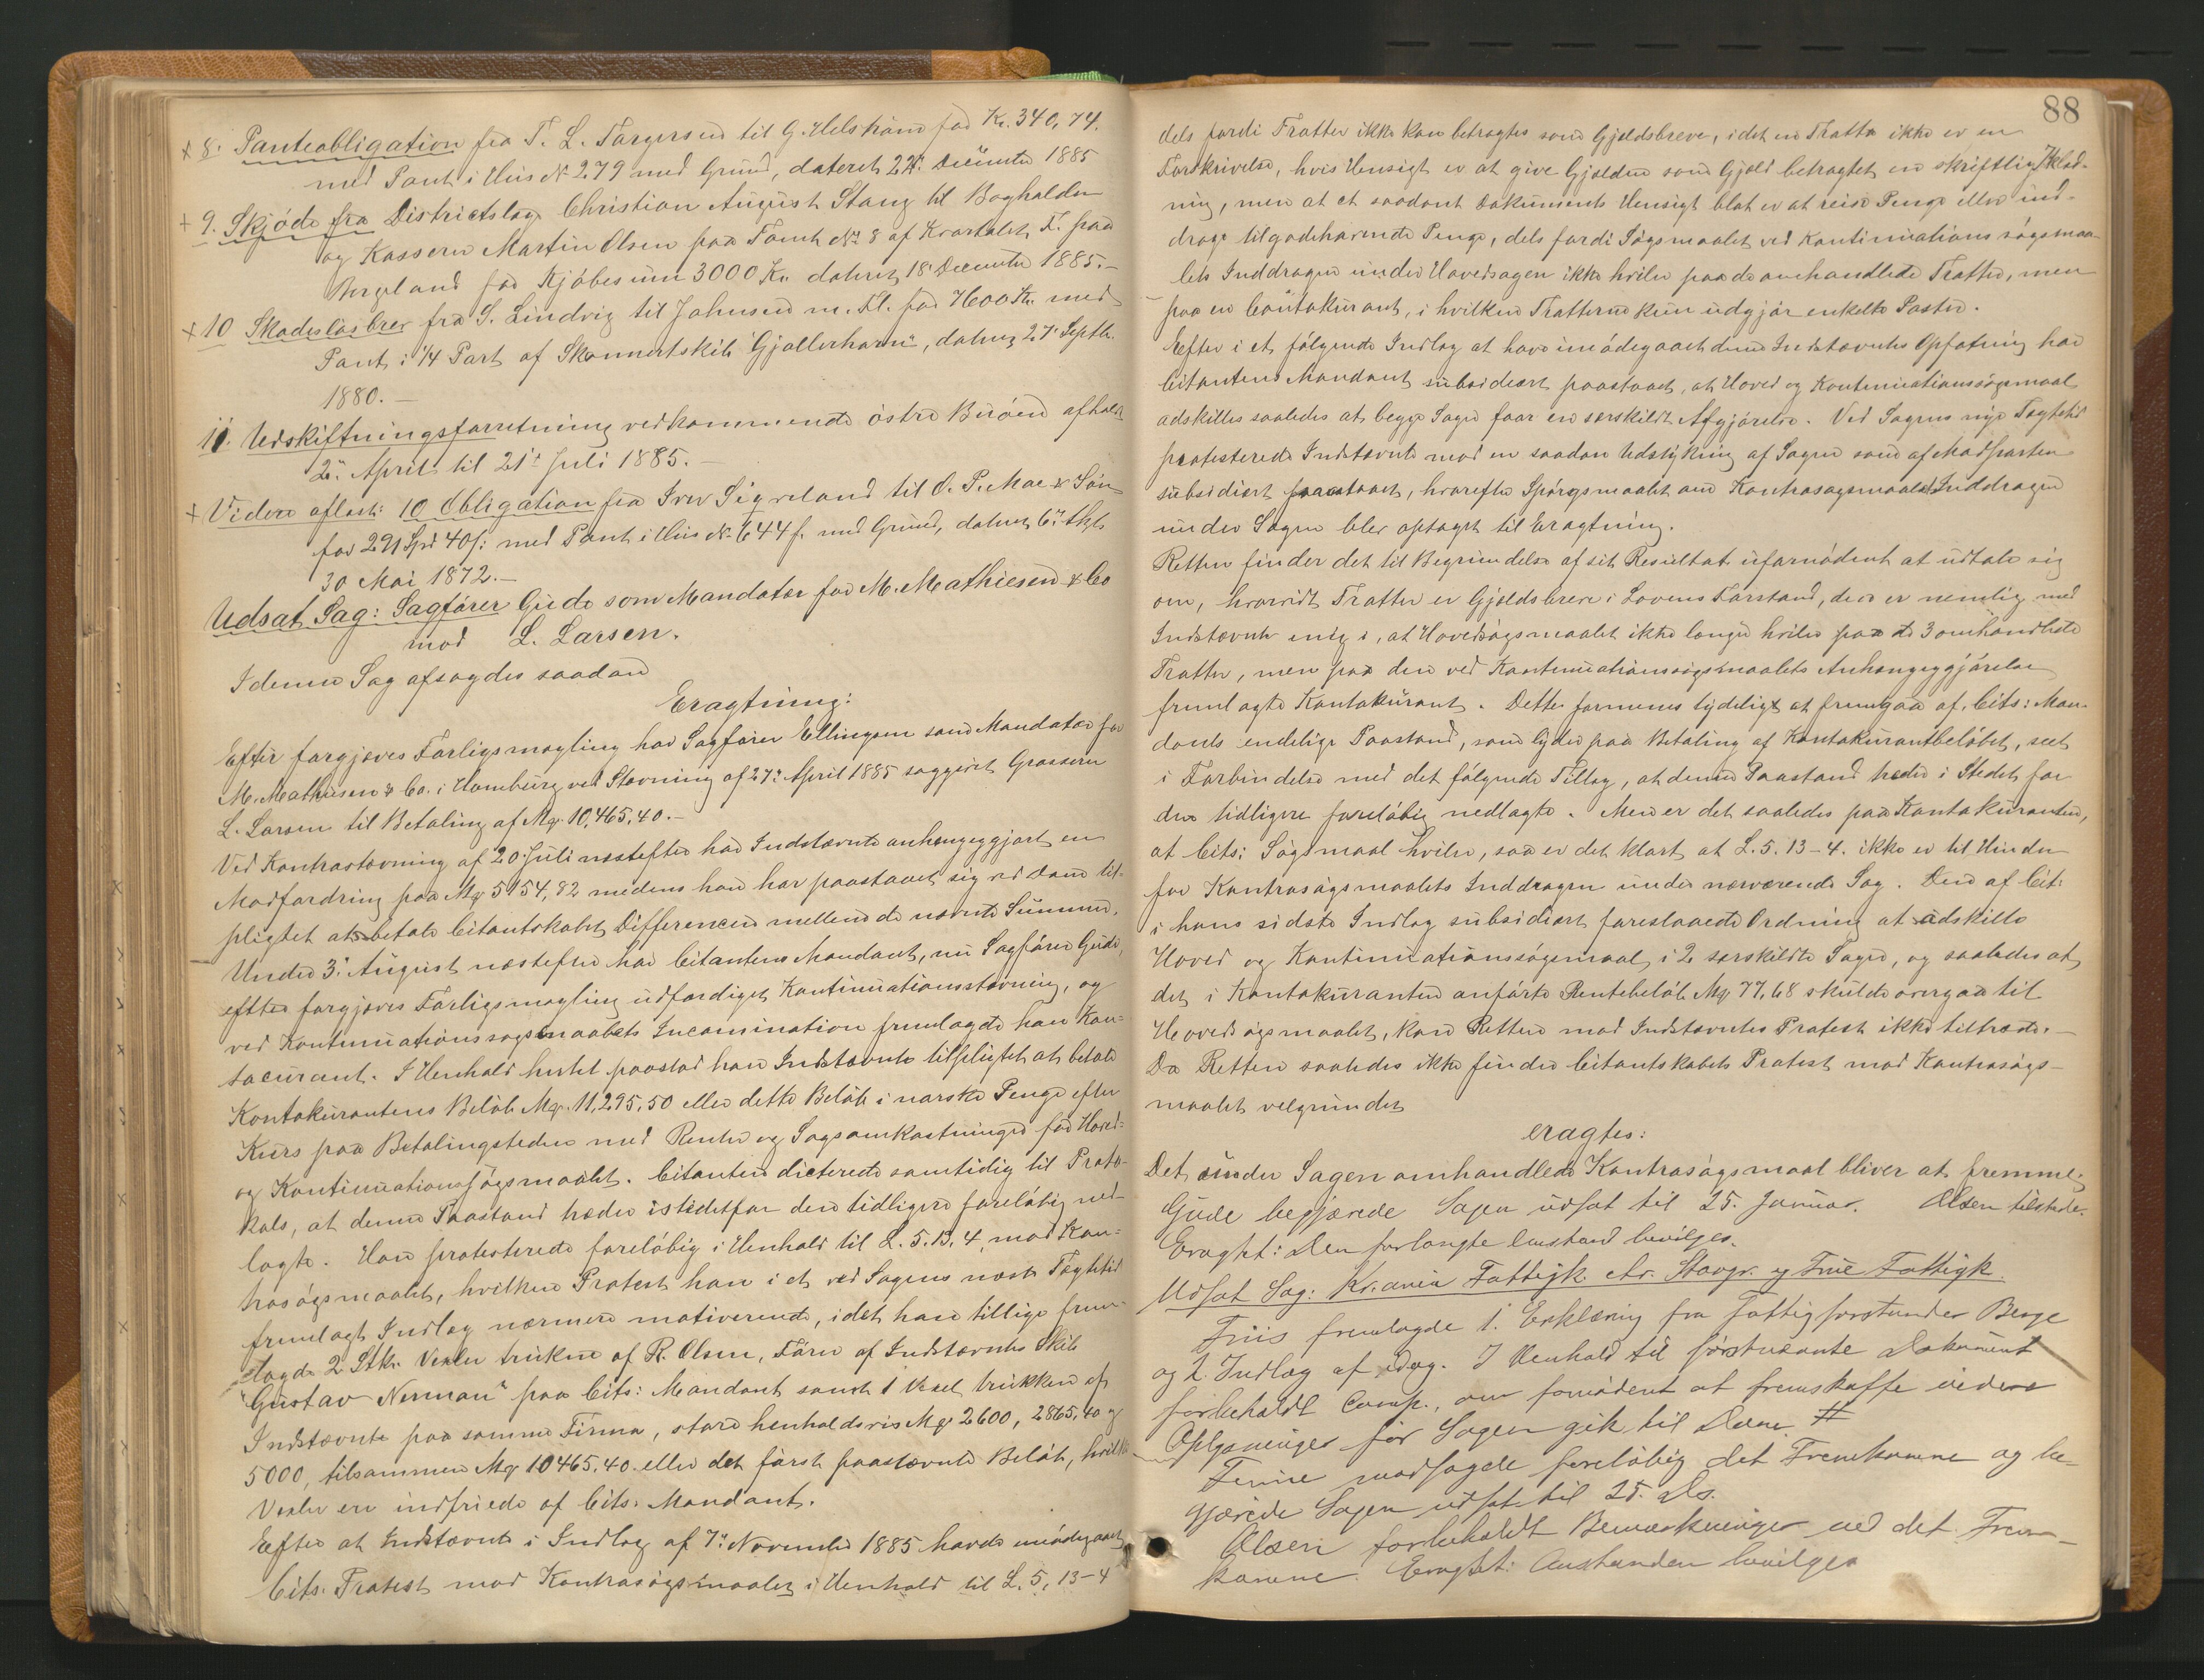 x 8. Panteobligation fra T. L. Torgersen til G. Helstrøm for Kr. 340,74.
med Pant i Hus № 279 med Grund, dateret 22d. December 1885
+ 9. Skjöde fra Districtslæge Christian August Stang til Bogholder
og Kasserer Martin Olsen paa Tomt № 8 af Kvartalet F. paa
for Kjöbesum 3000 Kr. dateret 18de December 1885.–
x 10 Skadeslösbrev fra S. Lindvig til Johnsen m. Fl. for 7600 Kr. med
Pant i 1/4 Part af Skonnertskib "Gjallerhorn", dateret 27de Septbr.
1880.–
11. Udskiftningsforretning vedkommende östre Buöen afholdt
2den April til 21de Juli 1885.–
+ Videre aflæst: 10 Obligation fra Iver Sigveland til O. P. Moe & Sön
for 291 Spd 40 s: med Pant i Hus № 644 f. med Grund, dateret
30 Mai 1872.–
Udsat Sag: Sagförer Gude som Mandatar for M. Mathiesen & Co
mod L. Larsen.
I denne Sag afsagdes saadan
Eragtning:
Efter forgjæves Forligsmægling har Sagförer Ellingsen som Mandatar for
M. Mathiesen & Co. i Hamburg ved Stævning af 27de April 1885 saggivet Grosserer
L. Larsen til Betaling af Mk. 10,465,40.–
Ved Kontrastævning af 20 Juli næstefter har Indstævnte anhængiggjort en
Modfordring paa Mk 5154,82 medens han har paastaaet sig ved Dom til-
pligtet at betale Citantskabet Differencen mellem de nævnte Summer.
Under 3de August næstefter har Citantens Mandant, nu Sagförer Gude,
efter forgjæves Forligsmægling udfærdiget Kontinuationsstævning, og
ved Kontinuationssögsmaalets Incamination fremlagde han Kon-
tocurant. I Henhold hertil paastod han Indstævnte tilpligtet at betale
Kontokurantens Belöb Mk. 11,295,50 eller dette Belöb i norske Penge efter
Kurs paa Betalingstiden med Renter og Sagsomkostninger for Hoved-
og Kontinuationssögsmaalet. Citanten dicterede samtidig til Proto-
kols, at denne Paastand træder istedetfor den tidligere foreløbig ned-
lagte. Han protesterede foreløbig i Henhold til L. 5.13.4, mod Kon-
trasögsmaalet, hvilken Protest han i et ved Sagens næste Tægtetid
fremlagt Indlæg nærmere motiverende, idet han tillige frem-
lagde 2 Stkr. Vexler trukne af R. Olsen, Förer af Indstævntes Skib
"Gustav Nerman" paa Cits: Mandant samt 1 Vexel trukken af
Indstævnte paa samme Firma, store henholdsvis Mk 2600, 2865,40 og
5000, tilsammen Mk 10465.40. eller det först paastævnte Belöb, hvilke
Vexler er indfriede af Cits. Mandant.
Efter at Indstævnte i Indlæg af 7de November 1885 havde imödegaaet
Cits. Protest mod Kontrasögsmaalet i Henhold til L. 5, 13–4
88
dels fordi Tratter ikke kan betragtes som Gjeldsbreve, idet en Tratte ikke er en
Forskrivelse, hvis Hensigt er at give Gjelden som Gjeld betragtet en skriftlig Iklæd-
ning, men at et saadant Dokuments Hensigt blot er at reise Penge eller ind-
drage tilgodehavende Penge, dels fordi Sögsmaalet ved Kontinuationssögsmaa-
lets Inddragen under Hovedsagen ikke hviler paa de omhandlede Tratter, men
paa en Contokurant, i hvilken Tratterne kun udgjör enkelte Poster.
Efter i et fölgende Indlæg at have imödegaaet denne Indstævntes Opfatning har
Citantens Mandant subsidiært paastaaet, at Hoved og Kontinuationssögsmaal
adskilles saaledes at begge Sager faar en særskildt Afgjörelse. Ved Sagens nye Tægtetid
protesterede Indstævnte mod en saadan Udstykning af Sagen som af Modparten
subsidiært foreslaaet, hvorefter Spörgsmaalet om Kontrasögsmaalets Inddragen
under Sagen blev optaget til Eragtning.
Retten finder det til Begrundelse af sit Resultat ufornödent at udtale sig
om, hvorvidt Tratter er Gjeldsbreve i Lovens Forstand, den er nemlig med
Indstævnte enig i, at Hovedsögsmaalet ikke længer hviler paa de 3 omhandlede
Tratter, men paa den ved Kontinuationssögsmaalets Anhængiggjörelse
fremlagte Kontokurant. Dette formenes tydeligt at fremgaa af Cits: Man-
dants endelige Paastand, som lyder paa Betaling af Kontokurantbelöbet, seet
i Forbindelse med det fölgende Tillæg, at denne Paastand træder i Stedet for
den tidligere foreløbig nedlagte. Men er det saaledes paa Kontokuranten,
at Cits: Sögsmaal hviler, saa er det klart at L. 5. 13–4. ikke er til Hinder
for Kontrasögsmaalets Inddragen under nærværende Sag. Den af Cit:
i hans sidste Indlæg subsidiært foreslaaede Ordning at adskille
Hoved og Kontinuationssögsmaal i 2 særskildte Sager, og saaledes at
det i Kontokuranten anförte Rentebelöb Mk 77,68 skulde overgaa til
Hovedsögsmaalet, kan Retten mod Indstævntes Protest ikke tiltræde.–
Da Retten saaledes ikke finder Citantskabets Protest mod Kontrasögs-
maalet velgrundet
eragtes:
Det under Sagen omhandlede Kontrasögsmaal bliver at fremme.
Gude begjærede Sagen udsat til 25. Januar. Olsen tilstede.
Eragtet: Den forlangte Anstand bevilges.
Udsat Sag: Kr.ania Fattigk. ctr. Stavgr. og Fattigk.
Friis fremlagde 1. Erklæring fra Fattigforstander Berge
og 2. Indlæg af idag. I Henhold til förstnævnte Dokument
forbeholdt Comp., om fornødent at fremskaffe videre
Oplysninger för Sagen gik til Doms. #
modsagde foreløbig det Fremkomne og be-
gjærede Sagen udsat til 25. ds.
Olsen forbeholdt Bemærkninger ved det Frem-
komne. Eragtet: Anstanden bevilges